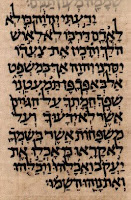 ידעתי יהוה כי לא
לאדם דרכו לא לאיש
הלך והכין את צעדו
יסרני יהוה אך במשפט
אל באפך פן תמעטני
שפך חמתך על הגוים
אשר לא ידעוך ועל
משפחות אשר בשמך
לא קראו כי אכלו את
יעקב ואכלהו ויכלהו
ואת נוהו השמו